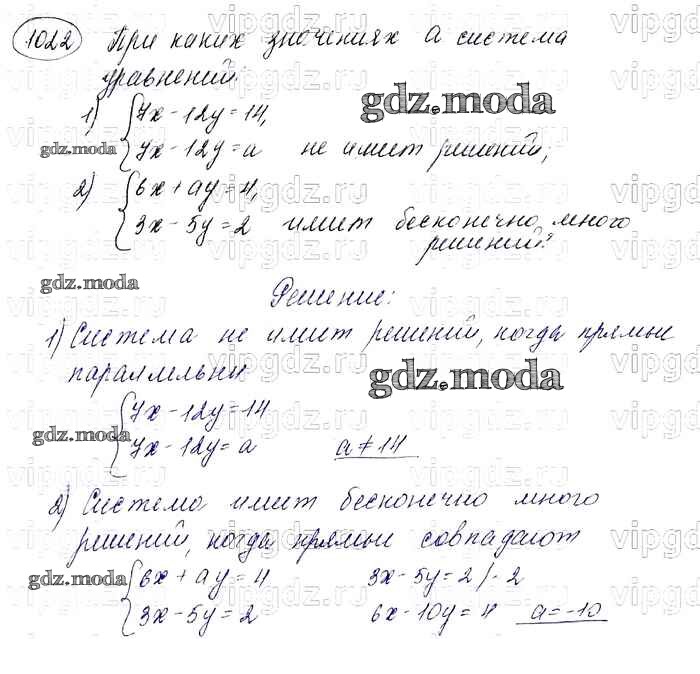 1022 При каких значениях а система
уравнений:
1) { 7x - 12y = 14,
gdz.moda
gdz.moda
7x - 12y = a не имеет решений;
2) { 6x + ay = 4,
3x - 5y = 2 имеет бесконечно много
решений?
gdz.moda
Решение:
1) Система не имеет решений, когда прямые
параллельны
gdz.moda
{ 7x - 12y = 14
gdz.moda
7x - 12y = a a ≠ 14
2) Система имеет бесконечно много
решений, когда прямые совпадают
gdz.moda
{ 6x + ay = 4 3x - 5y = 2 /·2
3x - 5y = 2 6x - 10y = 4 a = -10
vipgdz.ru